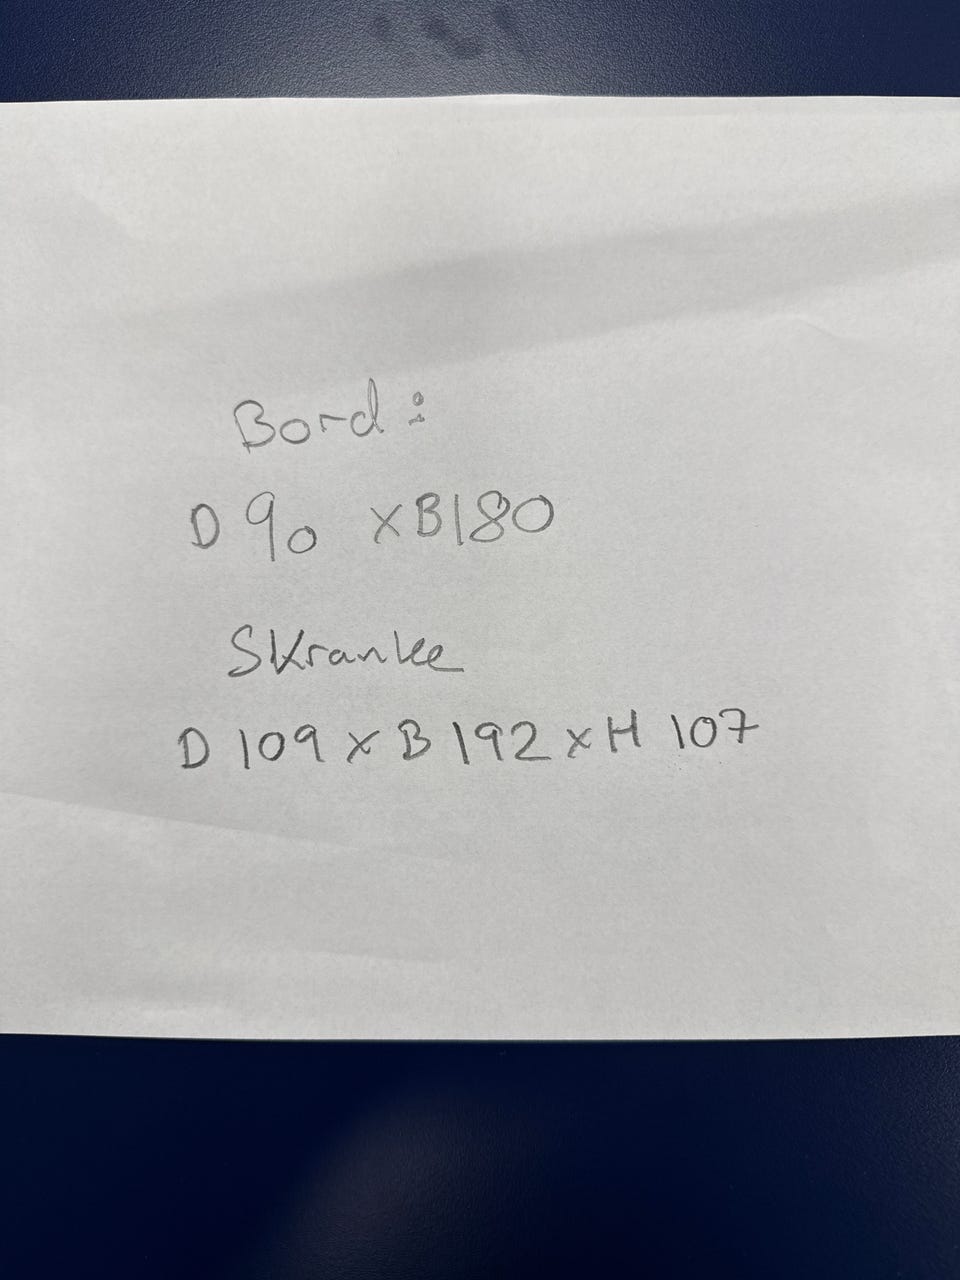 Bord:
D 90 x B180
Skranke
D 109 x B 192 x H 107